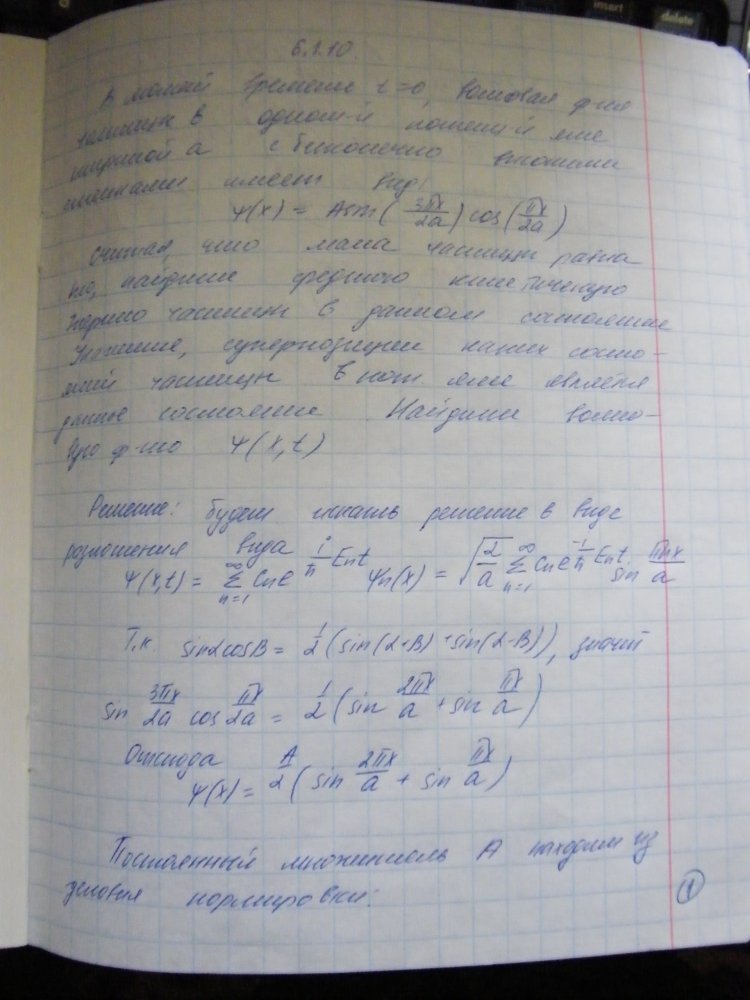 6.1.10.
В момент времени t=0, волновая ф-ия
частицы в одном-й потенц-й яме
шириной a с бесконечно высокими
стенками имеет вид:
Ψ(x) = A sin(3πx/2a) cos(πx/2a)
Считая, что масса частицы равна
m0, найдите среднюю кинетическую
энергию частицы в данном состоянии
Укажите, суперпозицией каких состо-
яний частицы в пот яме является
данное состояние. Найдите волно-
вую ф-ию Ψ(x,t)
Решение: будем искать решение в виде
разложения вида
Ψ(x,t) = ∑_{n=1}^{∞} Cn e^{-i/ħ Ent} Ψn(x) = √(2/a) ∑_{n=1}^{∞} Cn e^{-i/ħ Ent} sin πnx/a
Т.к. sinα cosβ = 1/2 (sin(α+β) + sin(α-β)), значит
sin 3πx/2a cos πx/2a = 1/2 (sin 2πx/a + sin πx/a)
Отсюда
Ψ(x) = A/2 (sin 2πx/a + sin πx/a)
Постоянный множитель A находим из
условия нормировки:
1